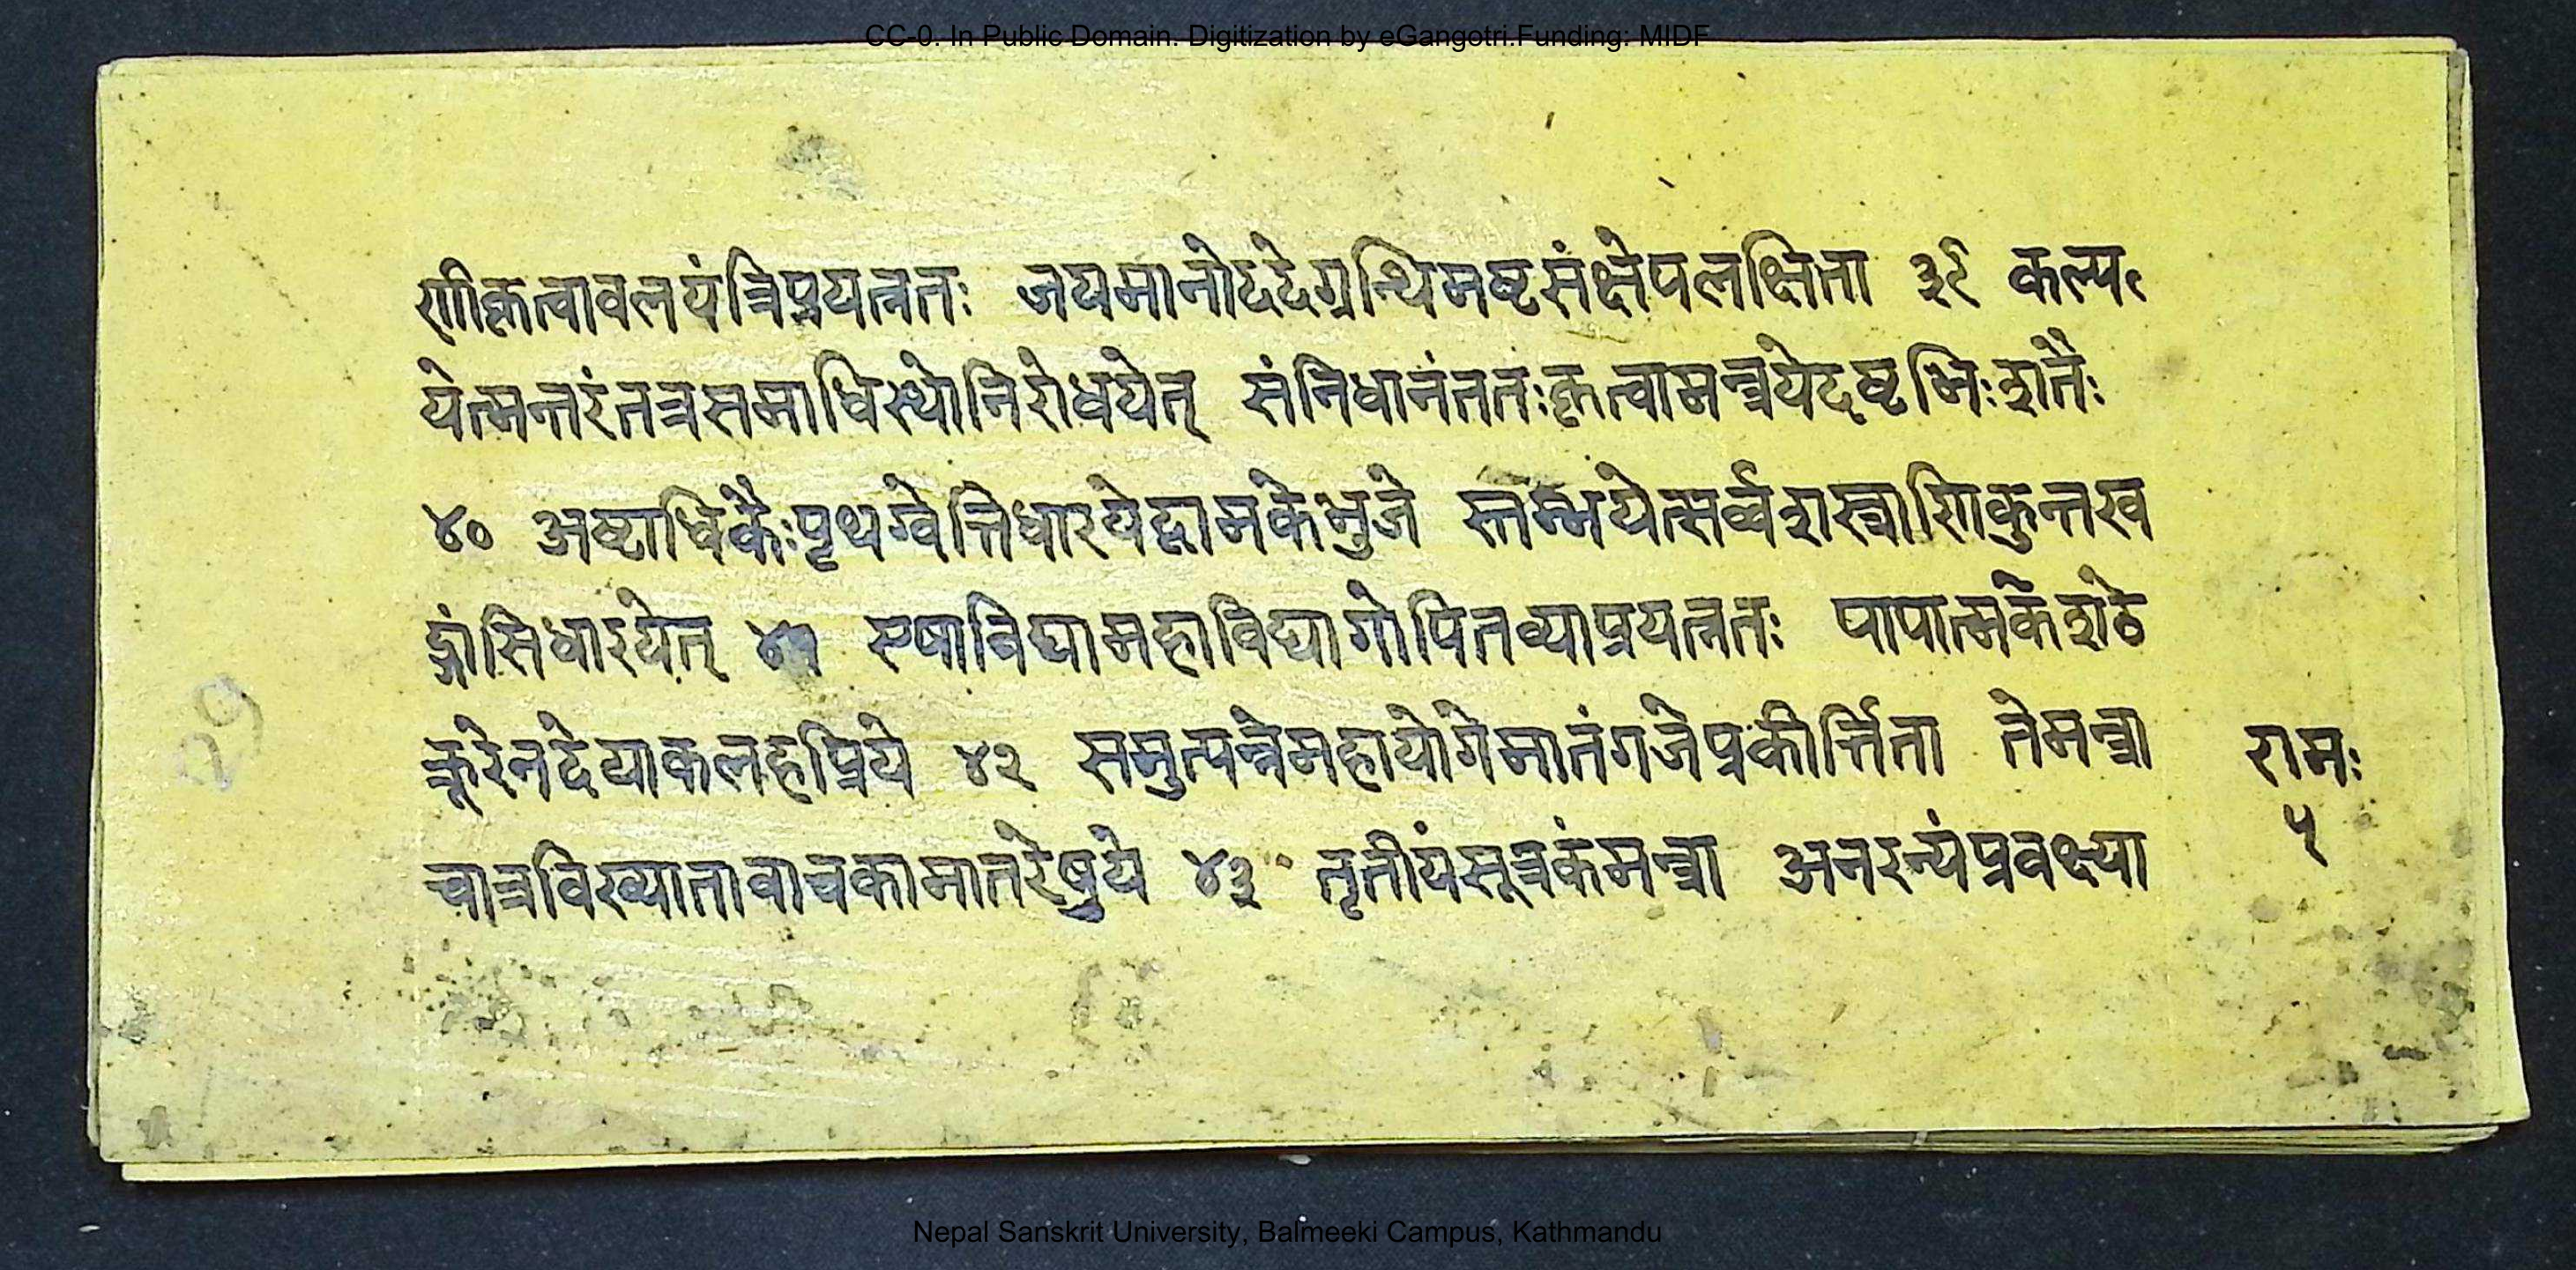 CC-0. In Public Domain. Digitization by eGangotri.Funding: MIDF
णीकृत्वावलयंत्रिप्रयत्नतः जयमानोददेग्रन्थिमष्टसंक्षेपलक्षिता ३९ कल्प
येत्मन्तरंतत्रसमाधिस्थोनिरोधयेत् संनिधानंततःकृत्वामन्त्रयेदष्टभिःशतैः
४० अष्टाधिकैःपृथग्वेत्तिधारयेद्वामकेभुजे स्तम्भयेत्सर्व्वशस्त्राणिकुन्तख
ड्गांसिधारयेत् ४१ एषाविद्यामहाविद्यागोपितव्याप्रयत्नतः पापात्मकेशठे
क्रूरेनदेयाकलहप्रिये ४२ समुत्पन्नेमहायोगेमातंगजेप्रकीर्त्तिता तेमन्त्रा
चात्रविख्यातावाचकामातरेषुये ४३ तृतीयंसूत्रकंमन्त्रा अनरन्यंप्रवक्ष्या
रामः
५
Nepal Sanskrit University, Balmeeki Campus, Kathmandu